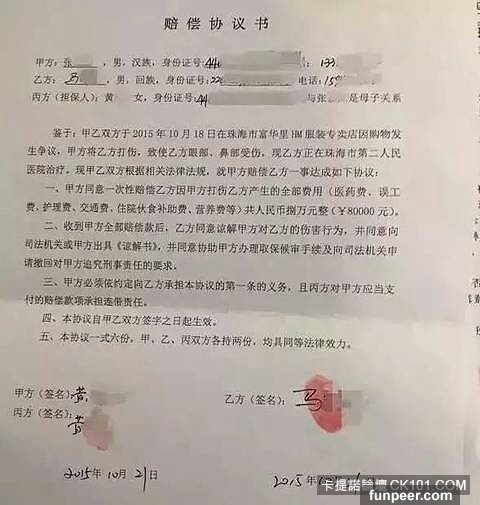 赔偿协议书
甲方：张，男，汉族，身份证号:44；133
乙方：马，男，回族，身份证号:22 电话：15
丙方（担保人）：黄 女，身份证号:44 与张 是母子关系
鉴于：甲乙双方于2015年10月18日在珠海市富华里HM服装专卖店因购物发
生争议，甲方将乙方打伤，致使乙方眼部、鼻部受伤，现乙方正在珠海市第二人民
医院治疗。现甲乙双方根据相关法律法规，就甲方赔偿乙方一事达成如下协议：
一、甲方同意一次性赔偿乙方因甲方打伤乙方产生的全部费用（医药费、误工
费、护理费、交通费、住院伙食补助费、营养费等）共人民币捌万元整（￥80000元）。
二、收到甲方全部赔偿款后，乙方同意谅解甲方对乙方的伤害行为，并同意向
司法机关或甲方出具《谅解书》，并同意协助甲方办理取保候审手续及向司法机关申
请撤回对甲方追究刑事责任的要求。
三、甲方必须依约定向乙方承担本协议的第一条的义务，且丙方对甲方应当支
付的赔偿款项承担连带责任。
四、本协议自甲乙双方签字之日起生效。
五、本协议一式六份，甲、乙、丙双方各持两份，均具同等法律效力。
甲方（签名）：黄 乙方（签名）：马
丙方（签名） 黄
2015年10月21日 2015年
卡提諾論壇 CK101.COM
funpeer.com